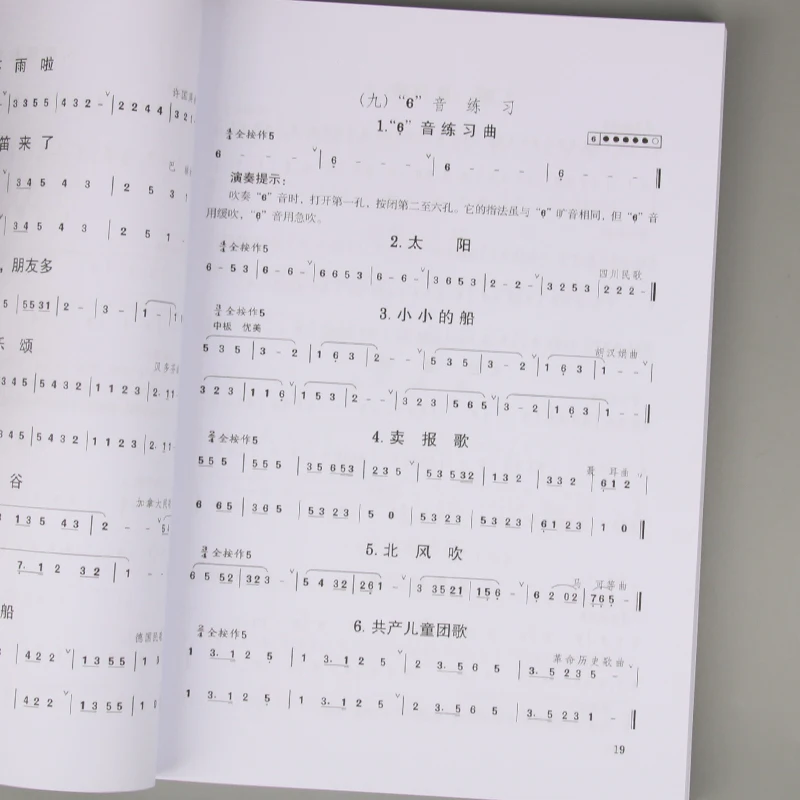 雨 啦
3 3 5 5 | 4 3 2 - | 2 2 4 4 |
笛 来 了
3 4 5 | 4 3 5 | 2 5 3
3 4 5 | 4 3 5 | 2 5 1
，朋友多
5 | 5531 | 2 - | 3 - | 1 -
乐 颂
5 | 5 4 3 2 | 1 1 2 3 | 2· 1 1
5 | 5 4 3 2 | 1 1 2 3 | 2· 1 1
谷
加拿大民歌
3 | 1 3 5 4 3 | 2 - -
7· 1 2 3 2 | 1
船
德国民歌
| 4 2 2 | 1 3 5 5
| 4 2 2 | 1 3 5 5
（九）“6” 音 练 习
1.“6”音练习曲
全按作5
6 ● ● ● ● ● ○
6 - - - | 6 - - - | 6 - - - | 6 - - - ‖
演奏提示：
吹奏“6”音时，打开第一孔，按闭第二至六孔。它的指法虽与“6”旷音相同，但“6”音
用缓吹，“6”音用急吹。
2.太 阳
全按作5
四川民歌
6 - 5 3 | 6 - 6 - | 6 6 5 3 | 6 - 6 - | 3 6 5 3 | 2 - 2 - | 3 2 5 3 | 2 2 2 - ‖
3.小小的船
全按作5
中板 优美
5 3 5 | 3 - 2 | 1 6 3 | 2 - - | 5 3 5 | 3 - 2 | 1 6 3 | 1 - - |
3 2 3 | 1 1 6 | 1 5 3 | 2 - - | 3 2 3 | 5 6 5 | 3 - 2 | 1 6 3 | 1 - - ‖
4.卖 报 歌
全按作5
聂 耳曲
5 5 5 | 5 5 5 | 3 5 6 5 3 | 2 3 5 | 5 3 5 3 2 | 1 3 2 | 3 3 2 | 6 1 2 |
6 6 5 | 3 6 5 | 5 3 2 3 | 5 0 | 5 3 2 3 | 5 3 2 3 | 6 1 2 3 | 1 0 ‖
5.北 风 吹
全按作5
6 5 5 2 | 3 2 3 - | 5 4 3 2 | 2 6 1 - | 3 3 5 2 1 | 1 5 6 - | 6 2 0 2 | 7 6 5 - ‖
6.共产儿童团歌
全按作5
革命历史歌曲
1 3· 1 2 5 | 1 3· 1 2 5 | 2 3· 5 6 5 | 3· 5 2 3 5 -
1 3· 1 2 5 | 1 3· 1 2 5 | 2 3· 5 6 5 | 3· 5 2 3 1 - ‖
19